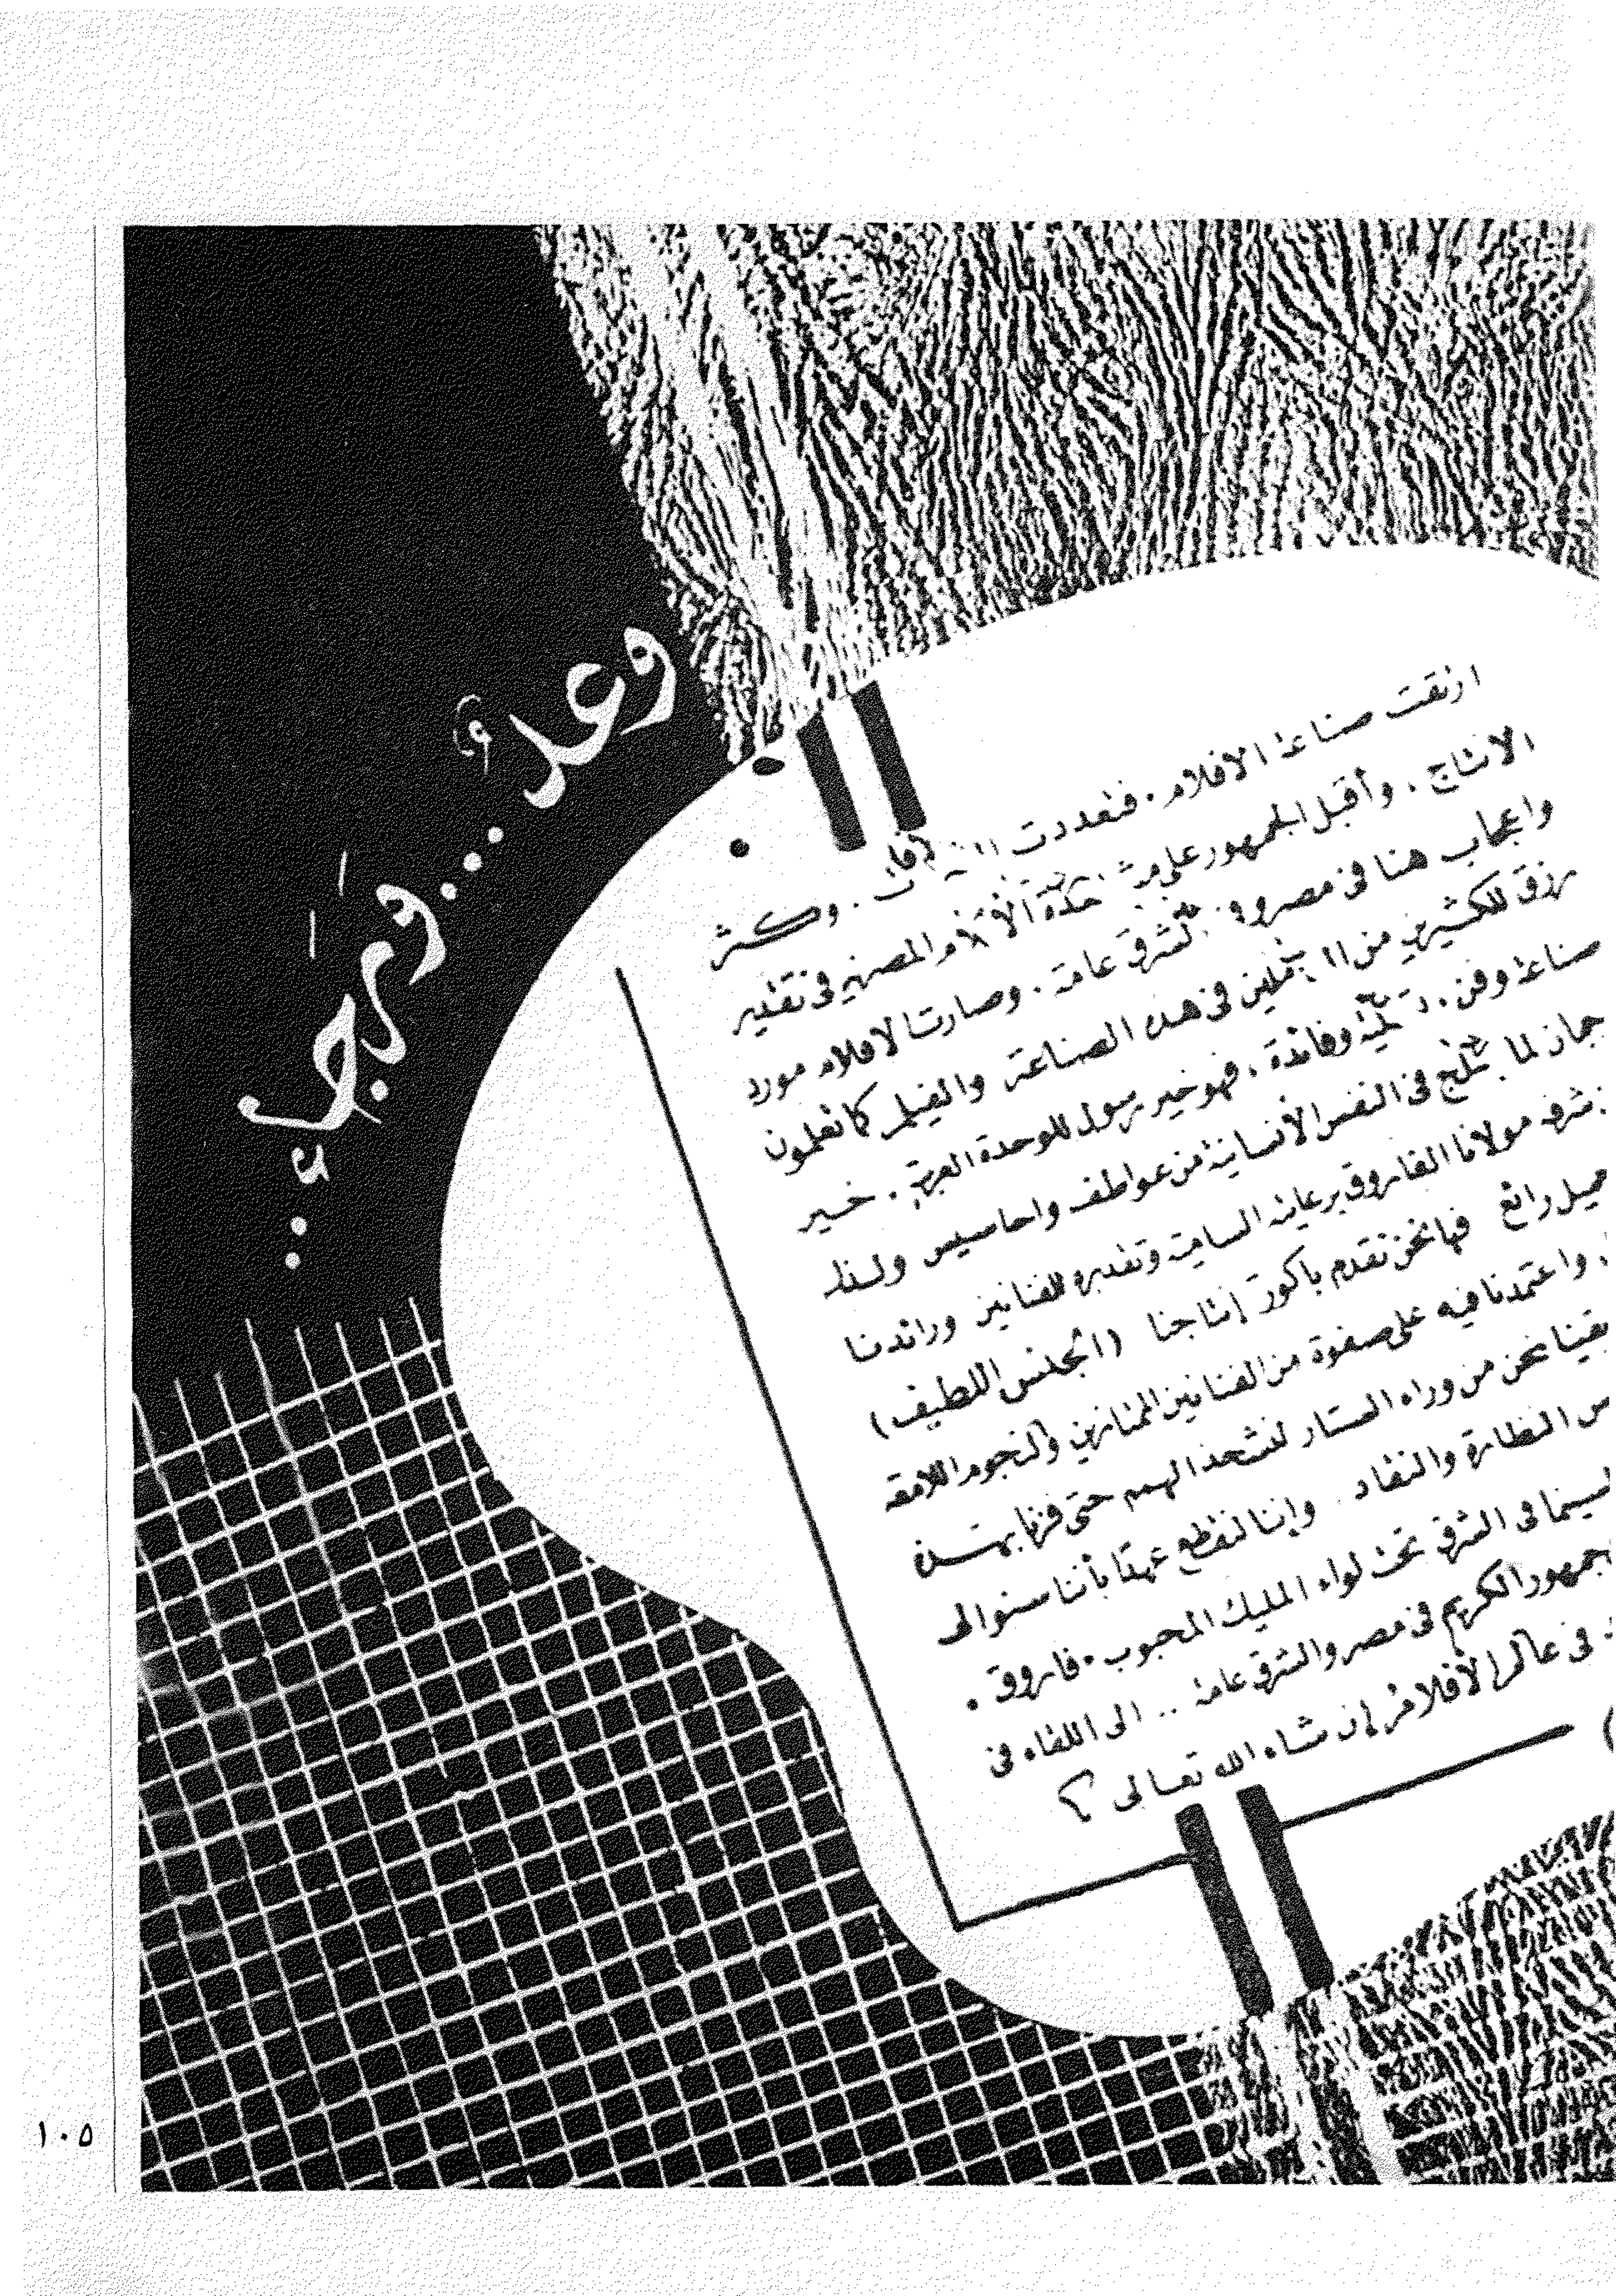 وعدٌ... ورجاء..
ارتقت صناعة الافلام . فتعددت . وكثر
الانتاج . وأقبل الجمهور على الأفلام المصرية فى تقدير
واعجاب هنا فى مصر و الشرق عامة . وصارت الافلام مورد
رزق للكثيرين من فى هذه الصناعة والفيلم كما تعلمون
صناعة وفن . وفائدة ، فهو خير رسول للوحدة العربية . خير
لما فى النفس الأنسانية من عواطف واحاسيس ولهذا
مولانا الفاروق برعايته السامية وتقديره للفنانين ورائدنا
رائع فها نحن نقدم باكورة إنتاجنا (الجنس اللطيف)
واعتمدنا فيه على صفوة من الفنانين الممتازين والنجوم اللامعة
نحن من وراء الستار لنشحذ الهمم حتى فزنا بهذه
النظارة والنقاد . وإننا لنقطع عهدًا بأننا سنوالى
السينما فى الشرق تحت لواء المليك المحبوب . فاروق .
الجمهور الكريم فى مصر والشرق عامة .. الى اللقاء فى
فى عالم الأفلام إن شاء الله تعالى ؟
١٠٥